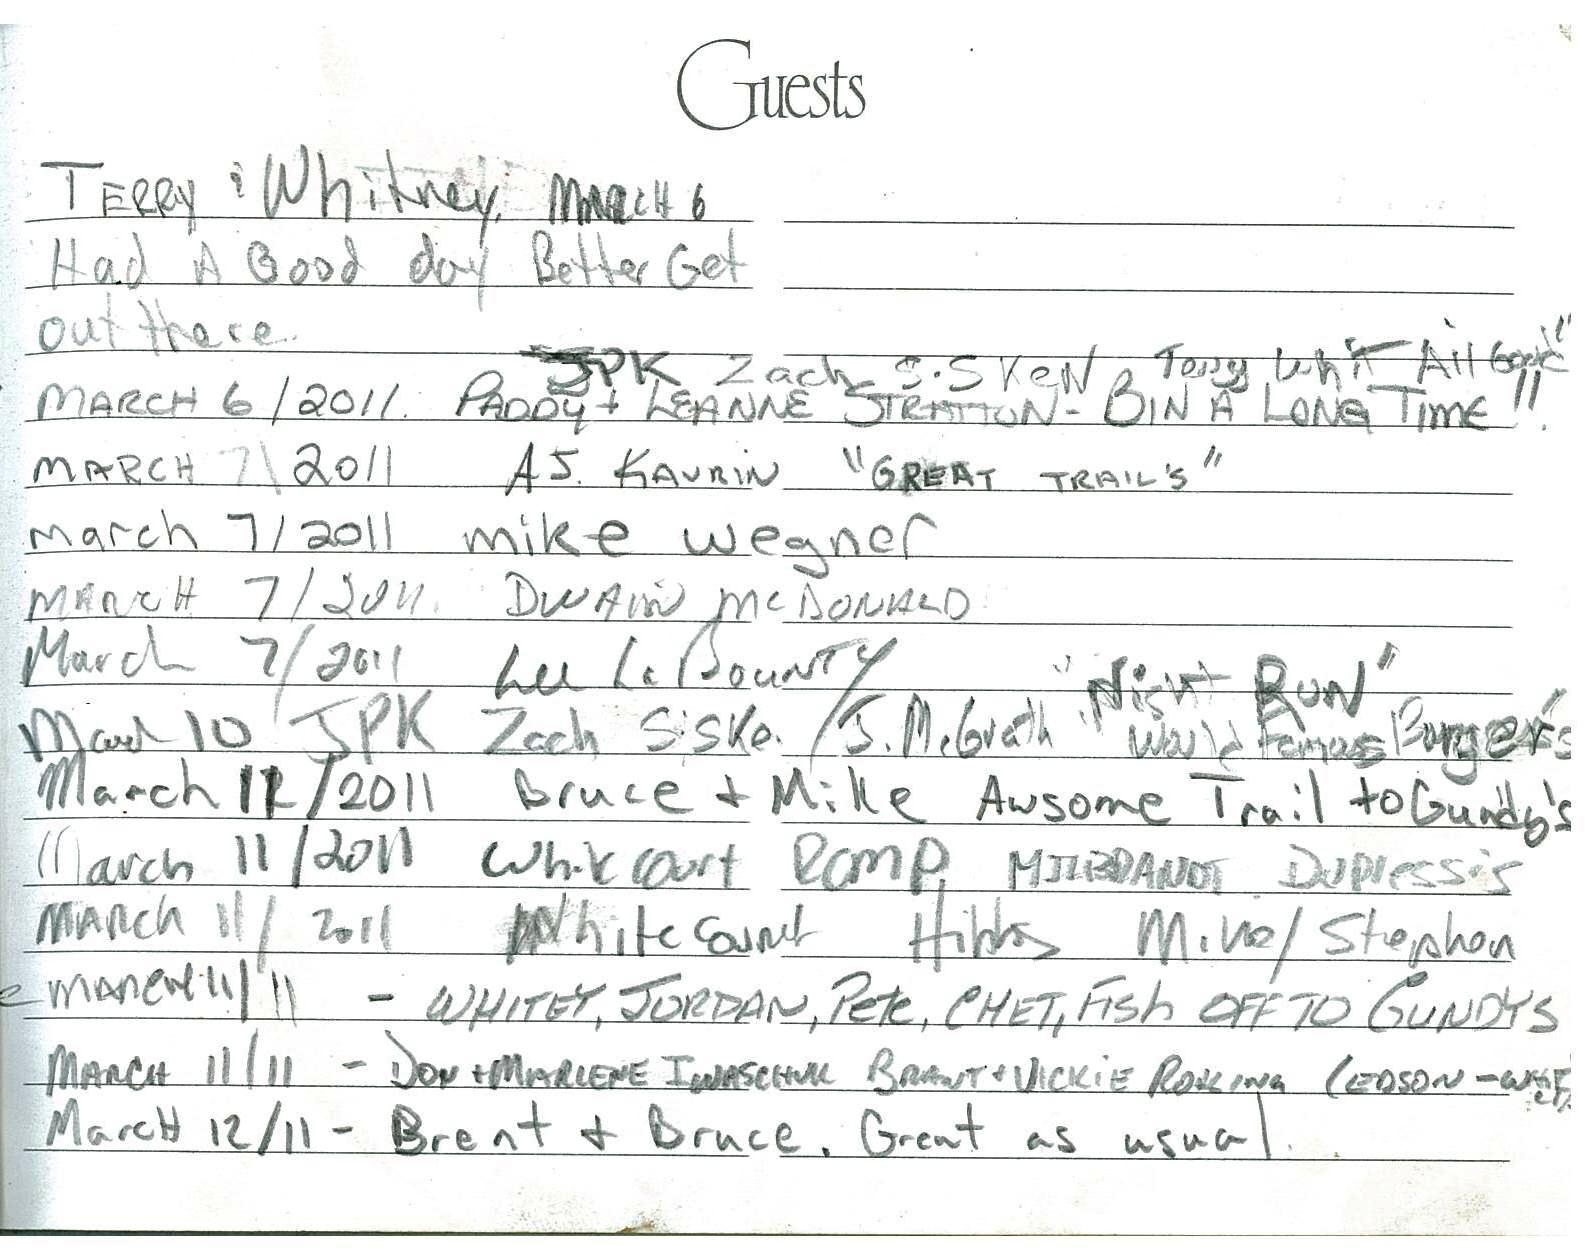 Guests
TERRY & Whitney, MARCH 6
Had A Good day Better Get
out there.
JPK Zach S.SKeN Terry Whit All Good"
MARCH 6/2011. PADDY + LEANNE STRATTON - BIN A LONG TIME!!
MARCH 7\2011 AJ. KAURIN "GREAT TRAIL'S"
march 7/2011 mike wegner
MARCH 7/2011. DWAIN McDONALD
March 7/2011 Lee LaBOUNTY
"Night RUN"
March 10 JPK Zach S.SKe. / J. McGrath World Famous Burger's
March 11/2011 Bruce + Mike Awsome Trail to Gundy's
March 11/2011 Whitecourt Romp MILBRANDT Duplessis
MARCH 11/2011 Whitecourt Hibbs Mike/Stephen
MARCH 11/11 - WHITEY, JORDAN, Pete, CHET, Fish OFF TO GUNDYS
MARCH 11/11 - DON + MARLENE IWASCHUK BRANT + VICKIE (EDSON -
MarcH 12/11 - Brent + Bruce. Great as usual.